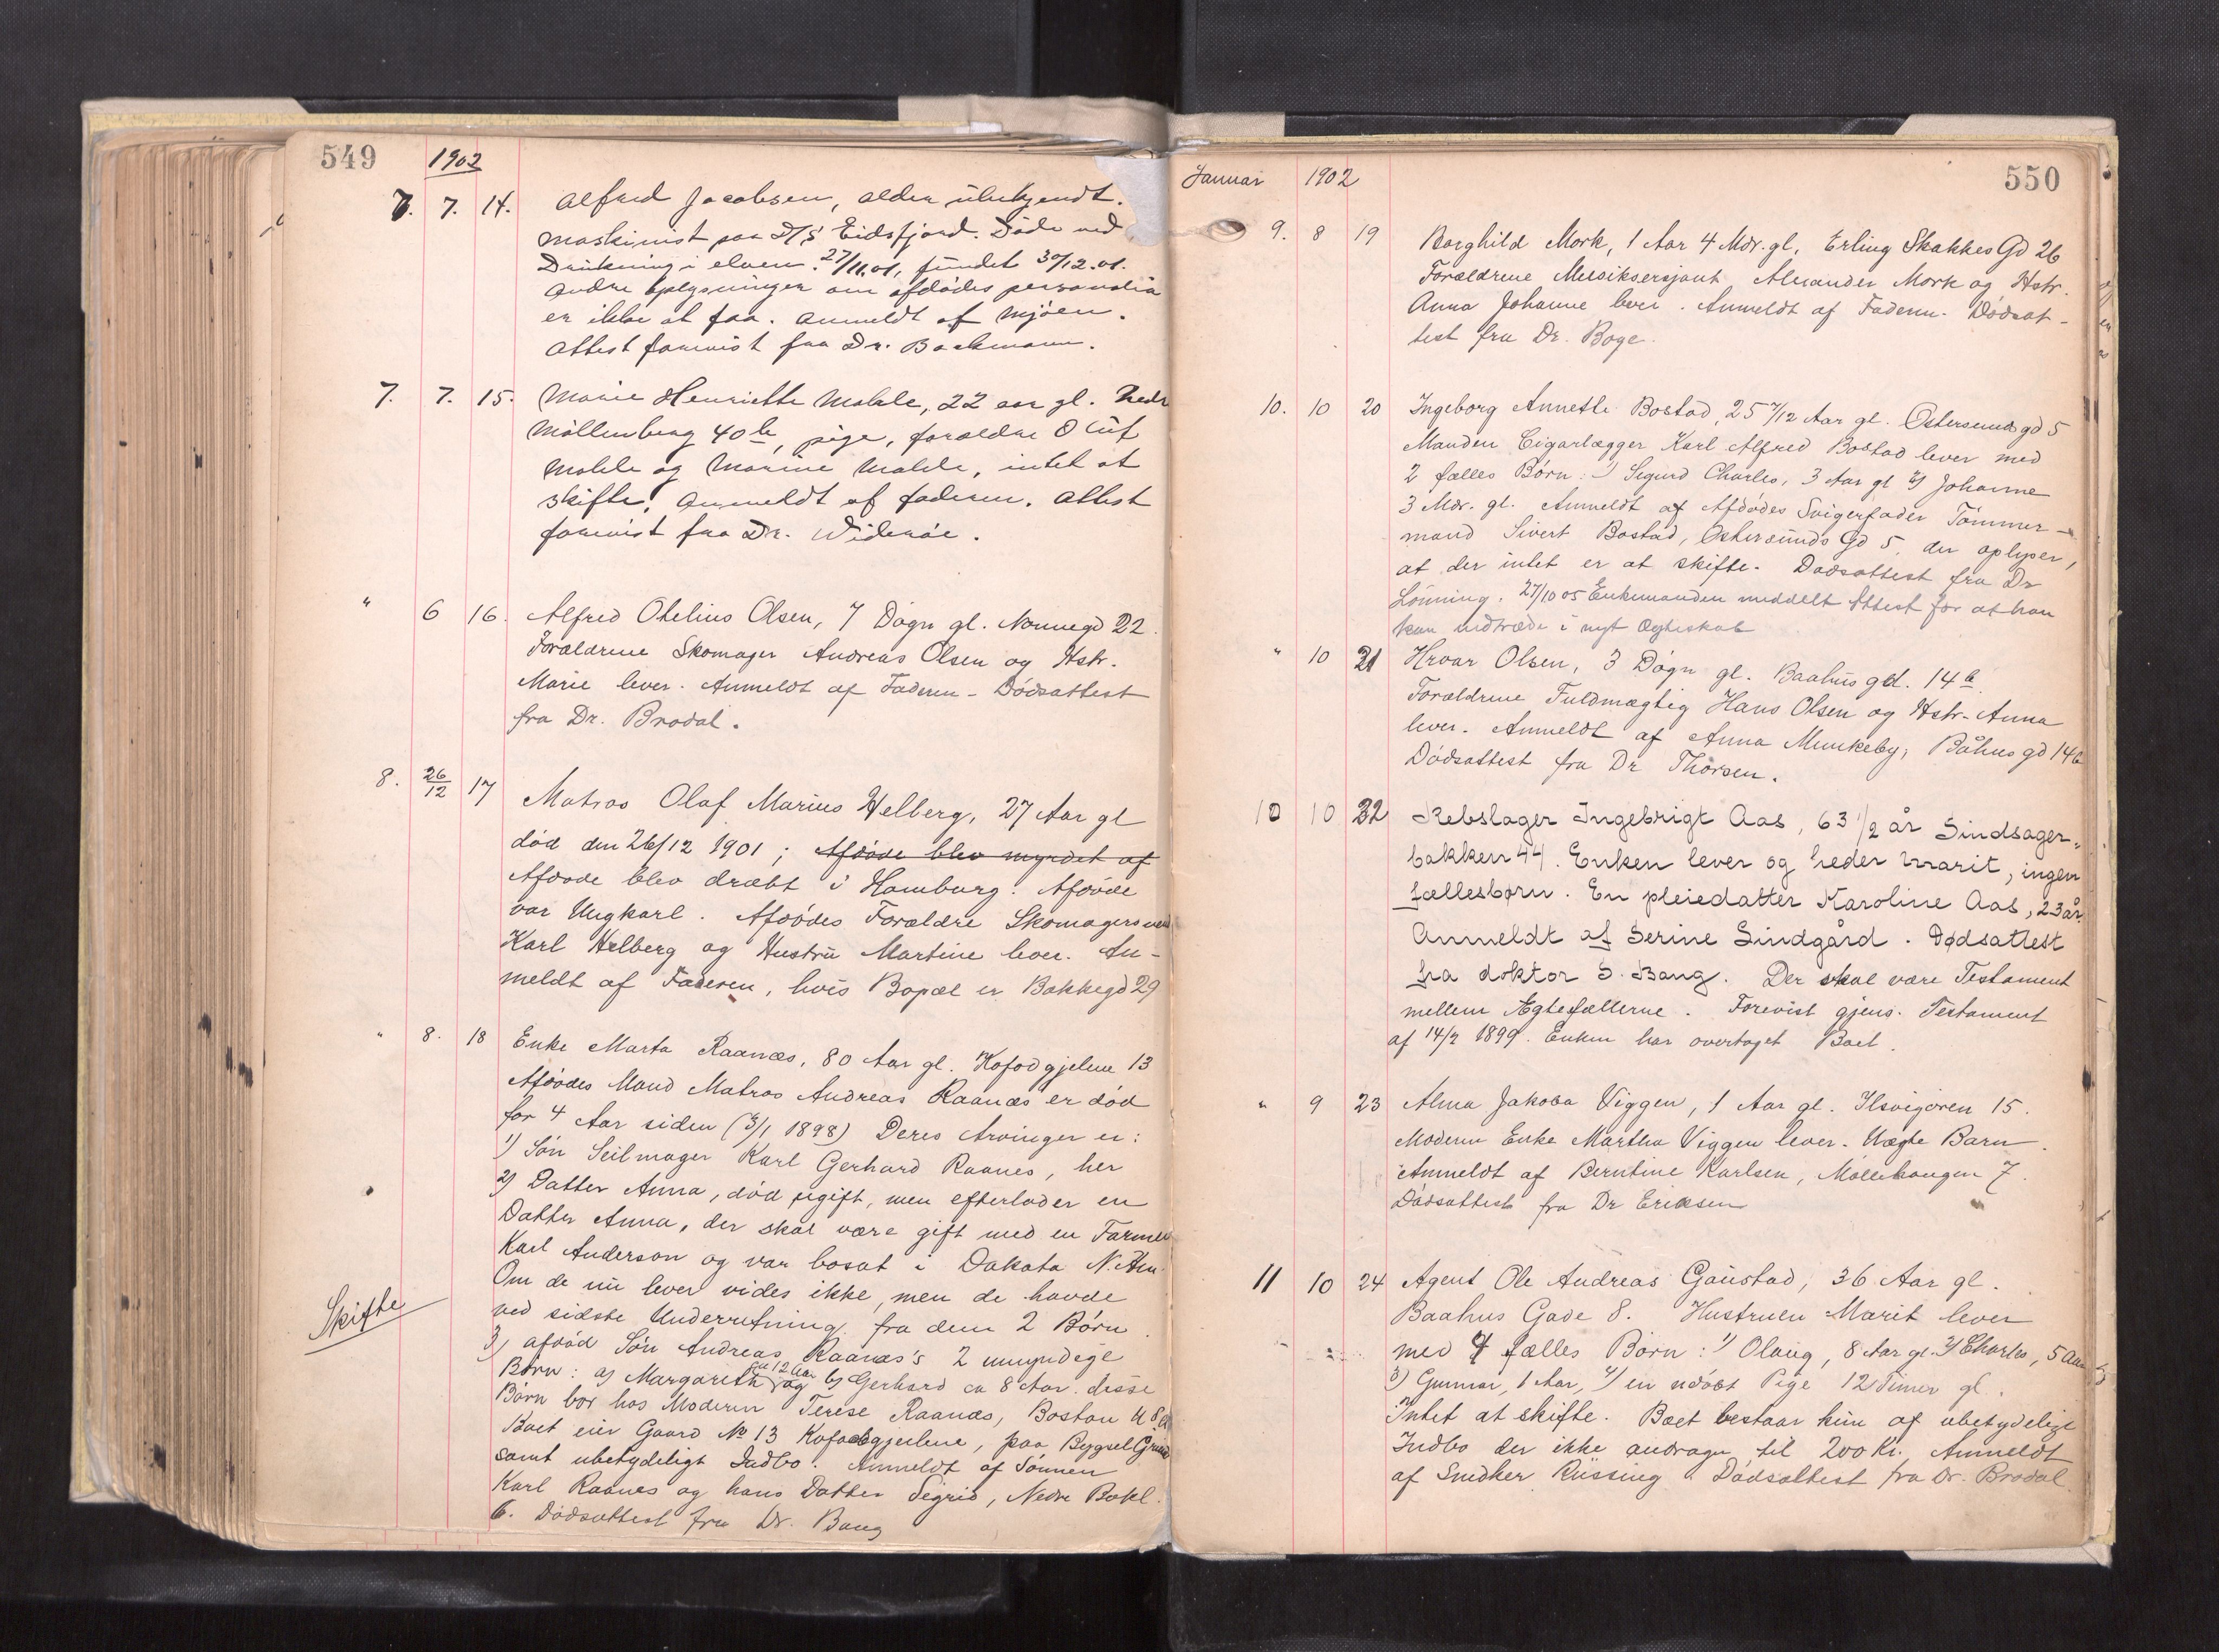 549 1902
7. 7. 14. Alfred Jacobsen, alder ubekjendt.
maskinist paa D/S Eidsfjord. Døde ved
Drukning i elven 27/11.01, fundet 30/12.01.
Andre oplysninger om afdødes personalia
er ikke at faa. Anmeldt af Mjøen.
Attest forevist fra Dr. Backmann.
7. 7. 15. Marie Henriette Mohle, 22 aar gl. Nedr
Møllenberg 40 b, pige, forældre Oluf
Mohle og Marine Mohle, intet at
skifte. Anmeldt af faderen. Attest
forevist fra Dr. Widerøe.
" 6 16. Alfred Otelius Olsen, 7 Døgn gl. Nonnegd 22.
Forældrene Skomager Andreas Olsen og Hstr.
Marie lever. Anmeldt af Faderen - Dødsattest
fra Dr. Brodal.
8. 26/12 17 Matros Olaf Marius Helberg, 27 Aar gl
død den 26/12 1901; Afdøde blev myrdet af
Afdøde blev dræbt i Hamburg. Afdøde
var Ungkarl. Afdødes Forældre Skomagersvend
Karl Helberg og Hustru Martine lever. An-
meldt af Faderen, hvis Bopæl er Bakkegd 29
" 8. 18 Enke Marta Raanæs, 80 Aar gl. Kofodgjelene 13
Afdødes Mand Matros Andreas Raanæs er død
for 4 Aar siden (3/1 1898) Deres Arvinger er:
1) Søn Seilmager Karl Gerhard Raanes, her
2) Datter Anna, død ugift, men efterlader en
Datter Anna, der skal være gift med en Farmer
Karl Anderson og var bosat i Dakota N. Am.
Om de nu lever vides ikke, men de havde
ved sidste Underretning fra dem 2 Børn.
Skifte
3) afdød Søn Andreas Raanæs's 2 umyndige
Børn: a) Margareth ca 12 Aar og b) Gerhard ca 8 Aar. disse
Børn bor hos Moderen Terese Raanæs, Boston U.S.A
Boet eier Gaard No 13 Kofoedgjelene, paa Bygsel Grund
samt ubetydeligt Indbo. Anmeldt af Sønnen
Karl Raanes og hans Datter Sigrid, Nedre Bakl.
6. Dødsattest fra Dr. Bang
Januar 1902 550
9. 8 19 Borghild Mork, 1 Aar 4 Mdr. gl, Erling Skakkes Gd 26
Forældrene Musiksersjant Alexander Mork og Hstr.
Anna Johanne lever. Anmeldt af Faderen. Dødsat-
test fra Dr. Boge.
10. 10 20 Ingeborg Annette Bostad, 25 7/12 Aar gl. Østersunds gd 5
Manden Cigarlægger Karl Alfred Bostad lever med
2 fælles Børn: 1) Sigurd Charles, 3 Aar gl 2) Johanne
3 Mdr. gl. Anmeldt af Afdødes Svigerfader Tømmer-
mand Sivert Bostad, Østersunds Gd 5, der oplyser,
at der intet er at skifte. Dødsattest fra Dr
Lønning. 27/10 05 Enkemanden meddelt Attest for at han
kan indtræde i nyt Ægteskab
" 10 21 Hroar Olsen, 3 Døgn gl. Baahus gd. 14 b.
Forældrene Fuldmægtig Hans Olsen og Hstr. Anna
lever. Anmeldt af Anna Munkeby, Båhus gd 14b
Dødsattest fra Dr Thorsen.
10 10 22 Rebslager Ingebrigt Aas, 63 1/2 år Sindsager-
bakken 44. Enken lever og heder Marit, ingen
fællesbørn. En pleiedatter Karoline Aas, 23 år.
Anmeldt af Serine Lindgård. Dødsattest
fra doktor S. Bang. Der skal være Testament
mellem Ægtefællerne. Forevist gjens. Testament
af 14/2 1899. Enken har overtaget Boet.
" 9 23 Alma Jakoba Viggen, 1 Aar gl. Ilsvigøren 15.
Moderen Enke Martha Viggen lever. Uægte Barn.
Anmeldt af Berntine Karlsen, Møllehaugen 7.
Dødsattest fra Dr Eriksen
11 10 24 Agent Ole Andreas Gaustad, 36 Aar gl.
Baahus Gade 8. Hustruen Marit lever
med 4 fælles Børn: 1) Olaug, 8 Aar gl. 2) Charles, 5 Aar
3) Gunnar, 1 Aar, 4) en udøbt Pige 12 Timer gl.
Intet at skifte. Boet bestaar kun af ubetydelige
Indbo der ikke andrager til 200 Kr. Anmeldt
af Snedker Rüssing. Dødsattest fra Dr. Brodal.